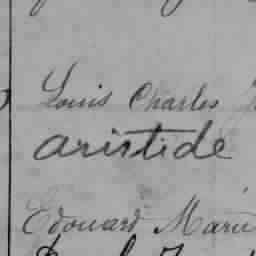 Louis Charles
aristide
Edouard Marie